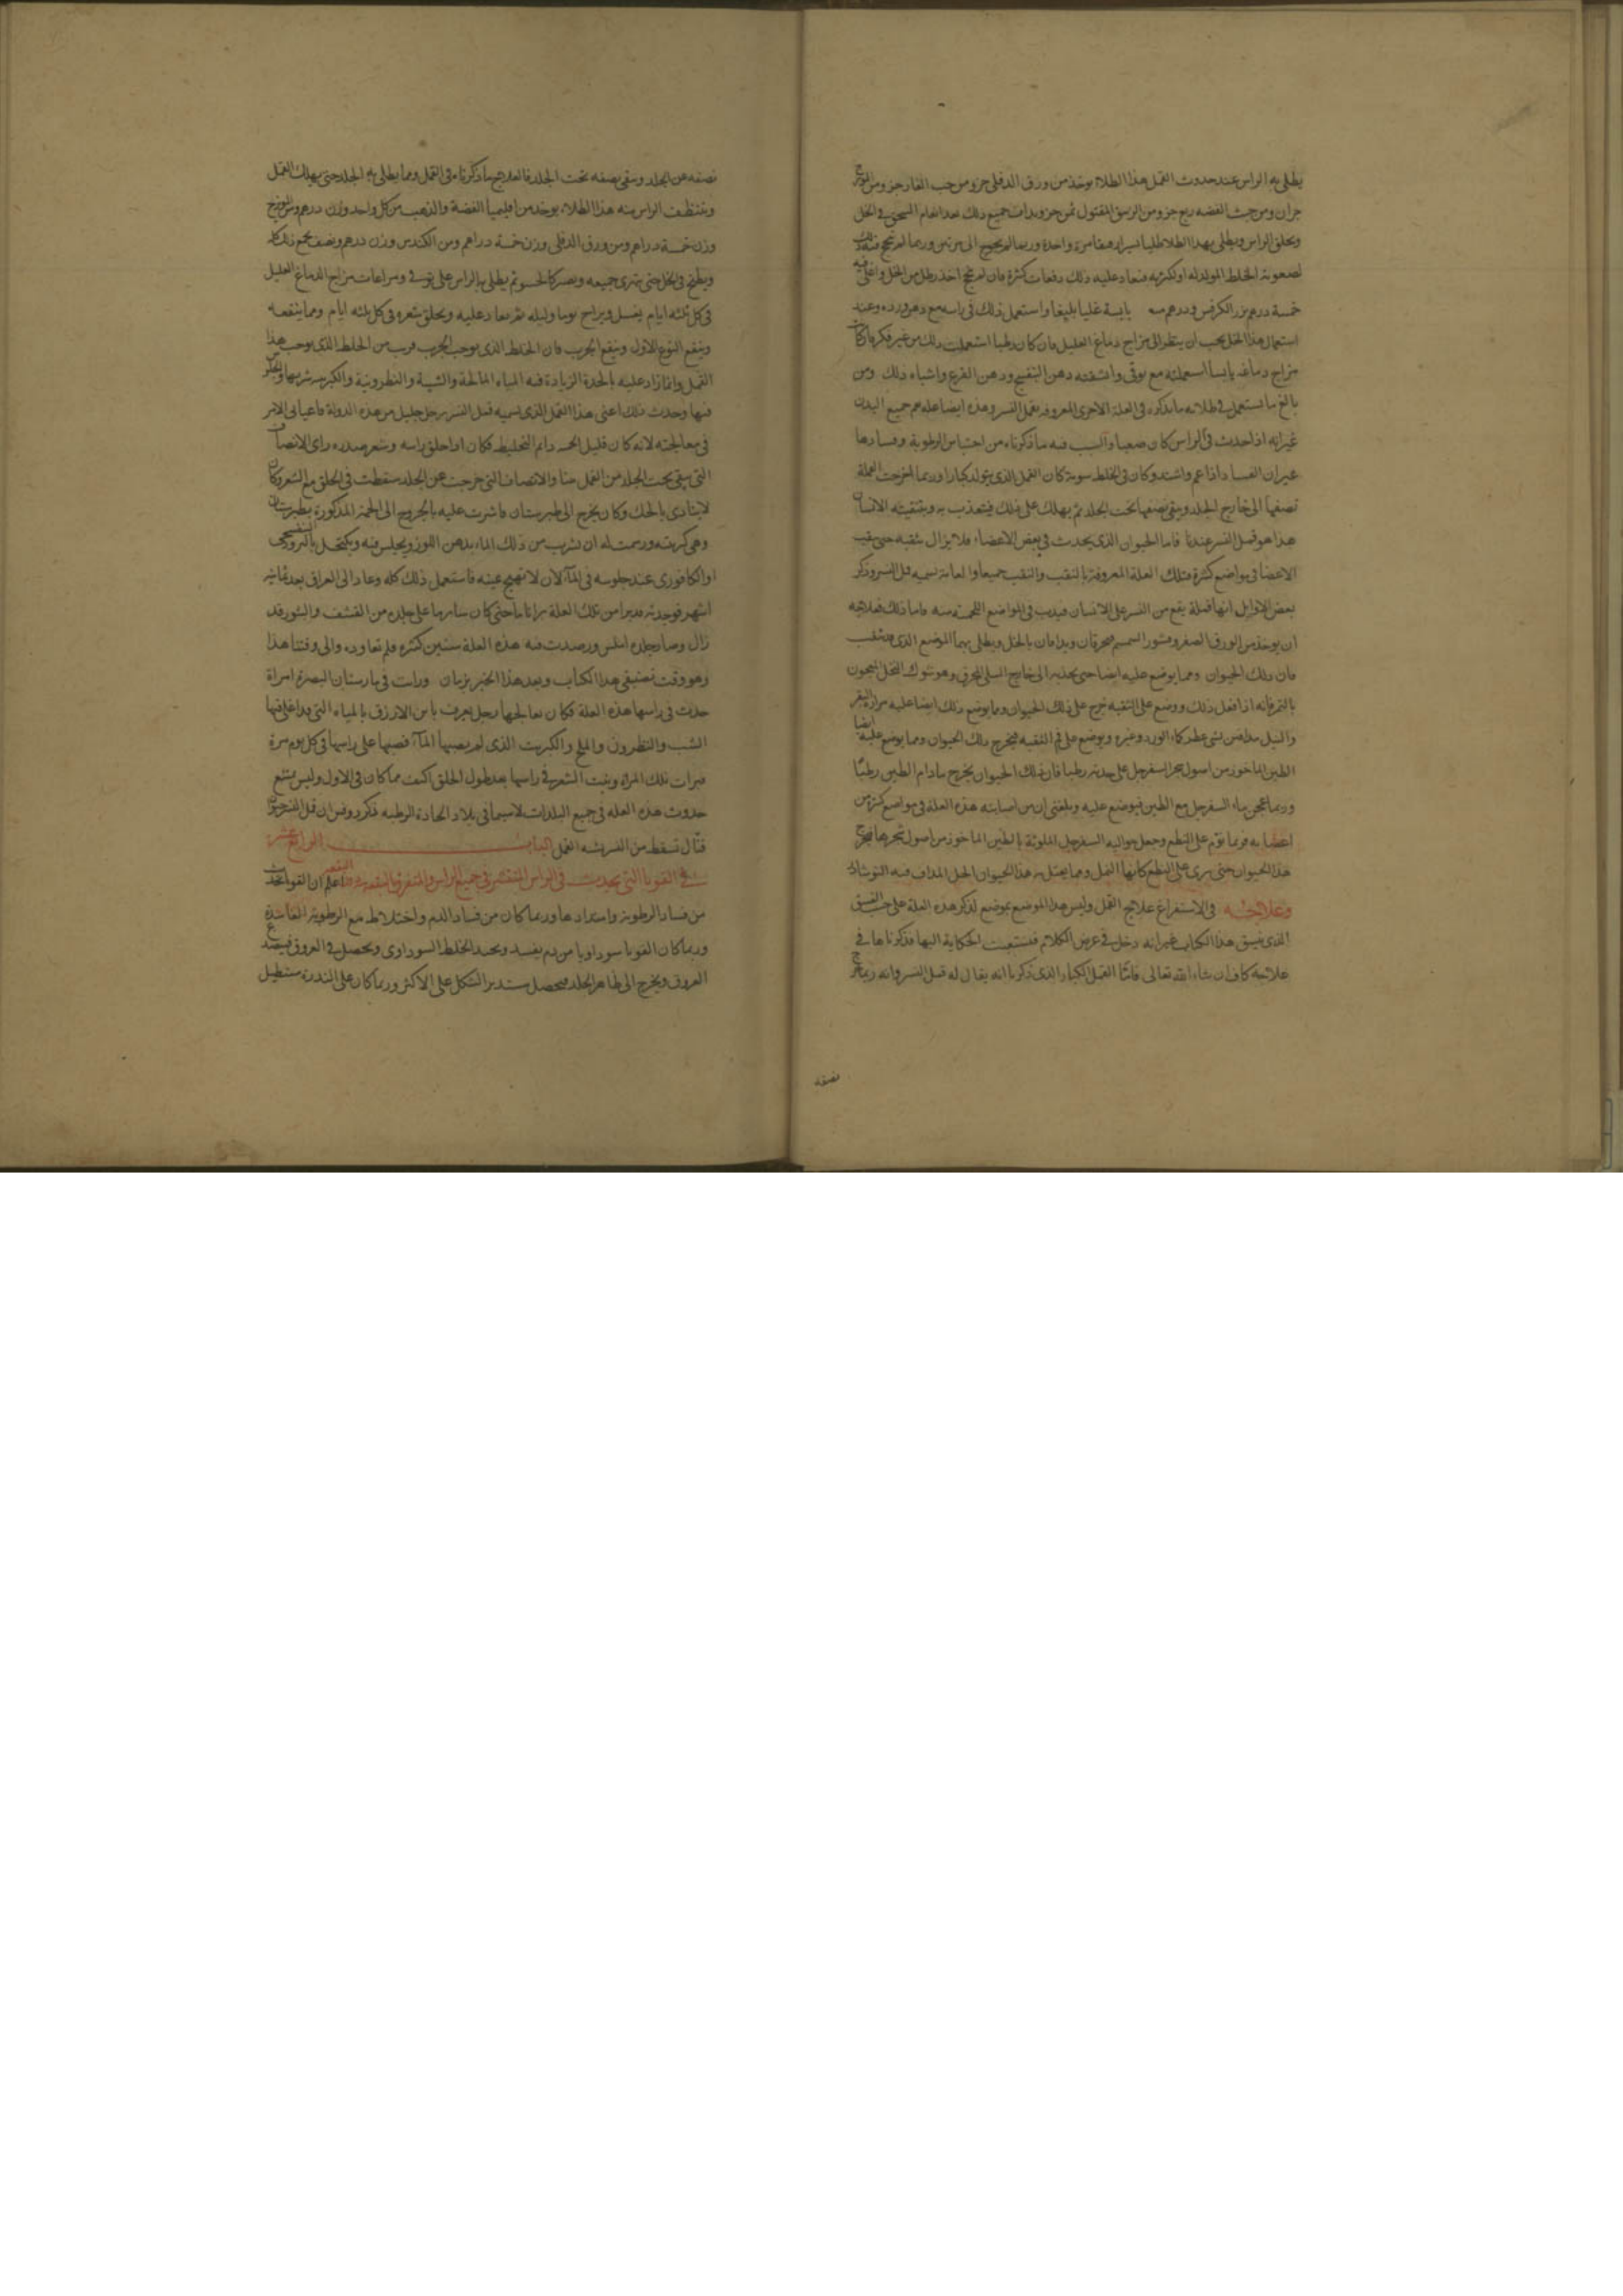 يطلى به الراس عند حدوث القمل هذا الطلاء يوخذ من ورق الدفلى جزو ومن حب الغار جزو ومن
جزان ومن خبث الفضه ربع جزو ومن الزيبق المقتول ثمن جزو ويداف جميع ذلك بعد انعام السحق في الخل
ويحلق الراس ويطلى بهذا الطلا طليا مرة واحدة وربما لم يحوج الى مرتين وربما لم ينجح فيه ذلك
لصعوبة الخلط المولد له او لكثرته فيعاد عليه ذلك دفعات كثيرة فان لم ينجح اخذ رطل من الخل واغلى فيه
خمسة درهم بزر الكرفس ودرهم يابسة غليا بليغا واستعمل ذلك في راسه مع دهن ورد وعند
استعمال هذا الخل يجب ان ينظر الى مزاج دماغ العليل فان كان رطبا استعملت ذلك من غير فكر وان كان
مزاج دماغه يابسا استعملته مع توقى وانشقته دهن البنفسج ودهن القرع واشباه ذلك ومن
بالغ ما تستعمل في طلايه ما نذكره في العلة الاخرى المعروفه بقمل النسر وهذه ايضا علة تعم جميع البدن
غير انه اذا حدث في الراس كان صعبا والسبب فيه ما ذكرناه من احتباس الرطوبة وفسادها
غير ان الفساد اذا عم واشتد وكان في الخلط كان القمل الذي يتولد كبارا وربما اخرجت القملة
نصفها الى خارج الجلد ويبقى نصفها تحت الجلد ثم يهلك على ذلك فيتعذب به وبتنقيته الانسان
هذا هو قمل النسر عندنا فاما الحيوان الذي يحدث في بعض الاعضاء فلا يزال يثقبه حتى يثقب
الاعضا في مواضع كثيرة فتلك العلة المعروفة بالنقب والنقب جميعا والعامة تسميه قمل النسر وذكر
بعض الاوايل انها قملة يقع من النسر على الانسان فيدب في المواضع اللحمة منه فاما ذلك فعلاجه
ان يوخذ من الورق الصفر وقشور السمسم فيحرقان ويدافان بالخل ويطلى بهما الموضع الذي
فان ذلك الحيوان ومما يوضع عليه ايضا حتى يجذبه الى خارج السلى المحرق وهو شوك النخل المعجون
بالتمر فانه اذا فعل ذلك ووضع على الثقبه خرج على ذلك الحيوان ومما يوضع ذلك ايضا عليه مرارة البقر
والنيل مدافين بشى عطر كماء الورد وغيره ويوضع على فم الثقبه فيخرج ذلك الحيوان ومما يوضع عليه ايضا
الطين الماخوذ من اصول شجر السفرجل على حدته رطبا فان ذلك الحيوان يخرج ما دام الطين رطبا
وربما عجن بماء السفرجل مع الطين فيوضع عليه وبلغني ان من اصابته هذه العلة في مواضع كثيرة من
اعضايه فربما نوم على النطع وجعل حواليه السفرجل الملوثة بالطين الماخوذ من اصول شجرها فيخرج
هذا الحيوان حتى يرى على النطع كانها النمل ومما يقتل به هذا الحيوان الخل المداف فيه النوشادر
وعلاجه في الاستفراغ علاج القمل وليس هذا الموضع بموضع لذكر هذه العلة على حسب النسق
الذي نسق هذا الكتاب غير انه دخل في عرض الكلام فتشعبت الحكاية اليها فذكرناها في
علاجه كاف ان شاء الله تعالى فاما القمل الكبار الذي ذكرنا انه يقال له قمل النسر وانه ربما خرج
نصفه
نصفه من الجلد وبقي نصفه تحت الجلد فالعلاج ما ذكرناه في القمل ومما يطلى به الجلد حتى يهلك القمل
وتنظف الراس منه هذا الطلاء يوخذ من اقليميا الفضة والذهب من كل واحد وزن درهم ومن
وزن خمسة دراهم ومن ورق الدفلى وزن خمسة دراهم ومن الكندس وزن درهم ونصف يجمع ذلك كله
ويطبخ في الخل حتى يتهرى جميعه ويصير كالحسو ثم يطلى به الراس على توقى ومراعات مزاج الدماغ العليل
في كل ثلثه ايام يغسل ويراح يوما وليله ثم يعاد عليه ويحلق شعره في كل ثلثه ايام ومما ينفعه
وينفع النوع الاول وينفع الجرب فان الخلط الذي يوجب الجرب قريب من الخلط الذي يوجب هذا
القمل وانما زاد عليه بالحدة الزيادة فيه المياه المالحة والشبية والنطرونية والكبريتية شربها والجلوس
فيها وحدث ذلك اعنى هذا القمل الذي نسميه قمل النسر برجل جليل من هذه الدولة فاعيانى الامر
في معالجته لانه كان قليل الحمية دايم التخليط فكان اذا حلق راسه وشعر صدره راى الانصاف
التي تبقى تحت الجلد من القمل ميتا والانصاف التي خرجت عن الجلد سقطت في الحلق مع الشعر وكان
لا يتاذى بالحك وكان يخرج الى طبرستان فاشرت عليه بالخروج الى الحمة المذكورة بطبرستان
وهي كبريتيه ورسمت له ان يشرب من ذلك الماء بدهن اللوز ويجلس فيه ويكتحل بالبرود البنفسجي
او الكافورى عند جلوسه في الماء لان لا تهيج عينه فاستعمل ذلك كله وعاد الى العراق بعد ثمانية
اشهر فوجدته قد برا من تلك العلة برا تاما حتى كان ساير ما على جلده من القشف والبثور قد
زال وصار جلده املس ورصدت فيه هذه العلة سنين كثيره فلم تعاوده والى وقتنا هذا
وهو وقت تصنيفى هذا الكتاب وبعد هذا الخبر بزمان ورايت في مارستان البصرة امراة
حدث في راسها هذه العلة فكان يعالجها رجل يعرف بابن الازرق بالمياه التي قد اغلى فيها
الشب والنطرون والملح والكبريت الذي لم يصبها الماء فصبها على راسها في كل يوم مرة
فبرات تلك المراة ونبت الشعر في راسها بعد طول الحلق اكثف مما كان في الاول وليس يمتنع
حدوث هذه العله في جميع البلدات لاسيما في بلاد الحادة الرطبه ذكر ان قمل النسر
قتال تسقط من النسر شبه القمل الباب الرابع عشر
في القوبا التي يحدث في الراس المتقشر في جميع الراس والمتفرق اعلم ان القوبا تحدث
من فساد الرطوبة واستدادها وربما كان من فساد الدم واختلاطه مع الرطوبة الفاسدة
وربما كان القوبا سوداويا من دم يفسد ويحتد الخلط السوداوى ويحصل في العروق
العروق ويخرج الى ظاهر الجلد فيحصل مستدير الشكل على الاكثر وربما كان على الندرة مستطيل